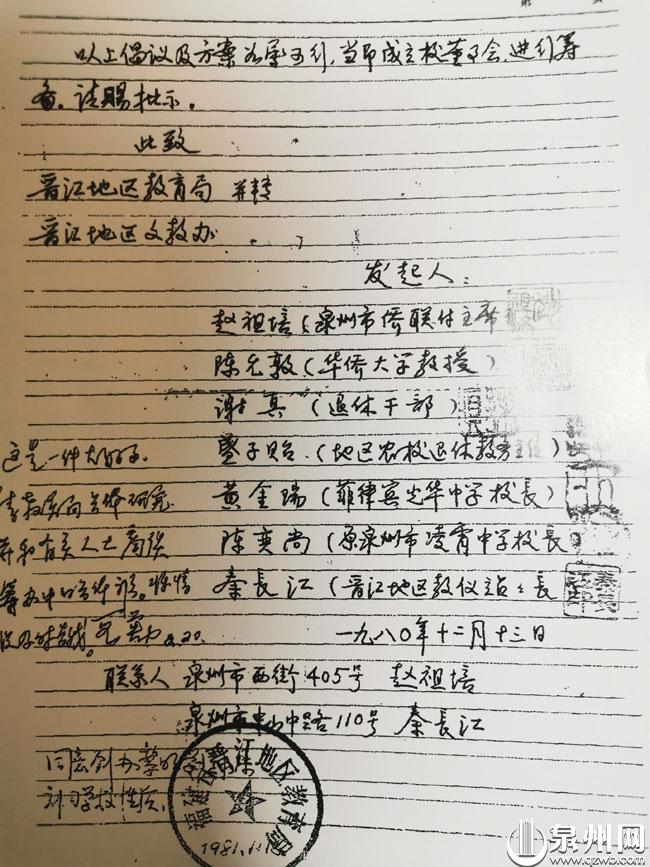 以上倡议及方案若属可行,当即成立校董事会,进行筹
备。请赐批示。
此致
晋江地区教育局 并转
晋江地区文教办
发起人:
赵祖培(泉州市侨联付主席
陈允敦(华侨大学教授)
谢真(退休干部)
子贻(地区农校退休教务主任)
黄金瑞(菲律宾光华中学校長)
陈奕尚(原泉州市凌霄中学校長
秦長江(晋江地区教仪站站長
一九八〇年十二月十三日
联系人 泉州市西街405号 赵祖培
泉州市中山中路110号 秦長江
这是一件大好事
请教育局具体研究
并和有关人士商谈
筹办中的具体
同意创办黎明
学校
福建省晋江地区教育局
1981.1.1
泉州网
www.qzwb.com